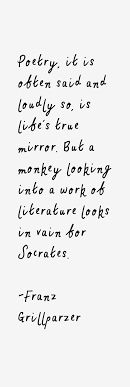 Poetry, it is
often said and
loudly so, is
life's true
mirror. But a
monkey looking
into a work of
literature looks
in vain for
Socrates.
-Franz
Grillparzer